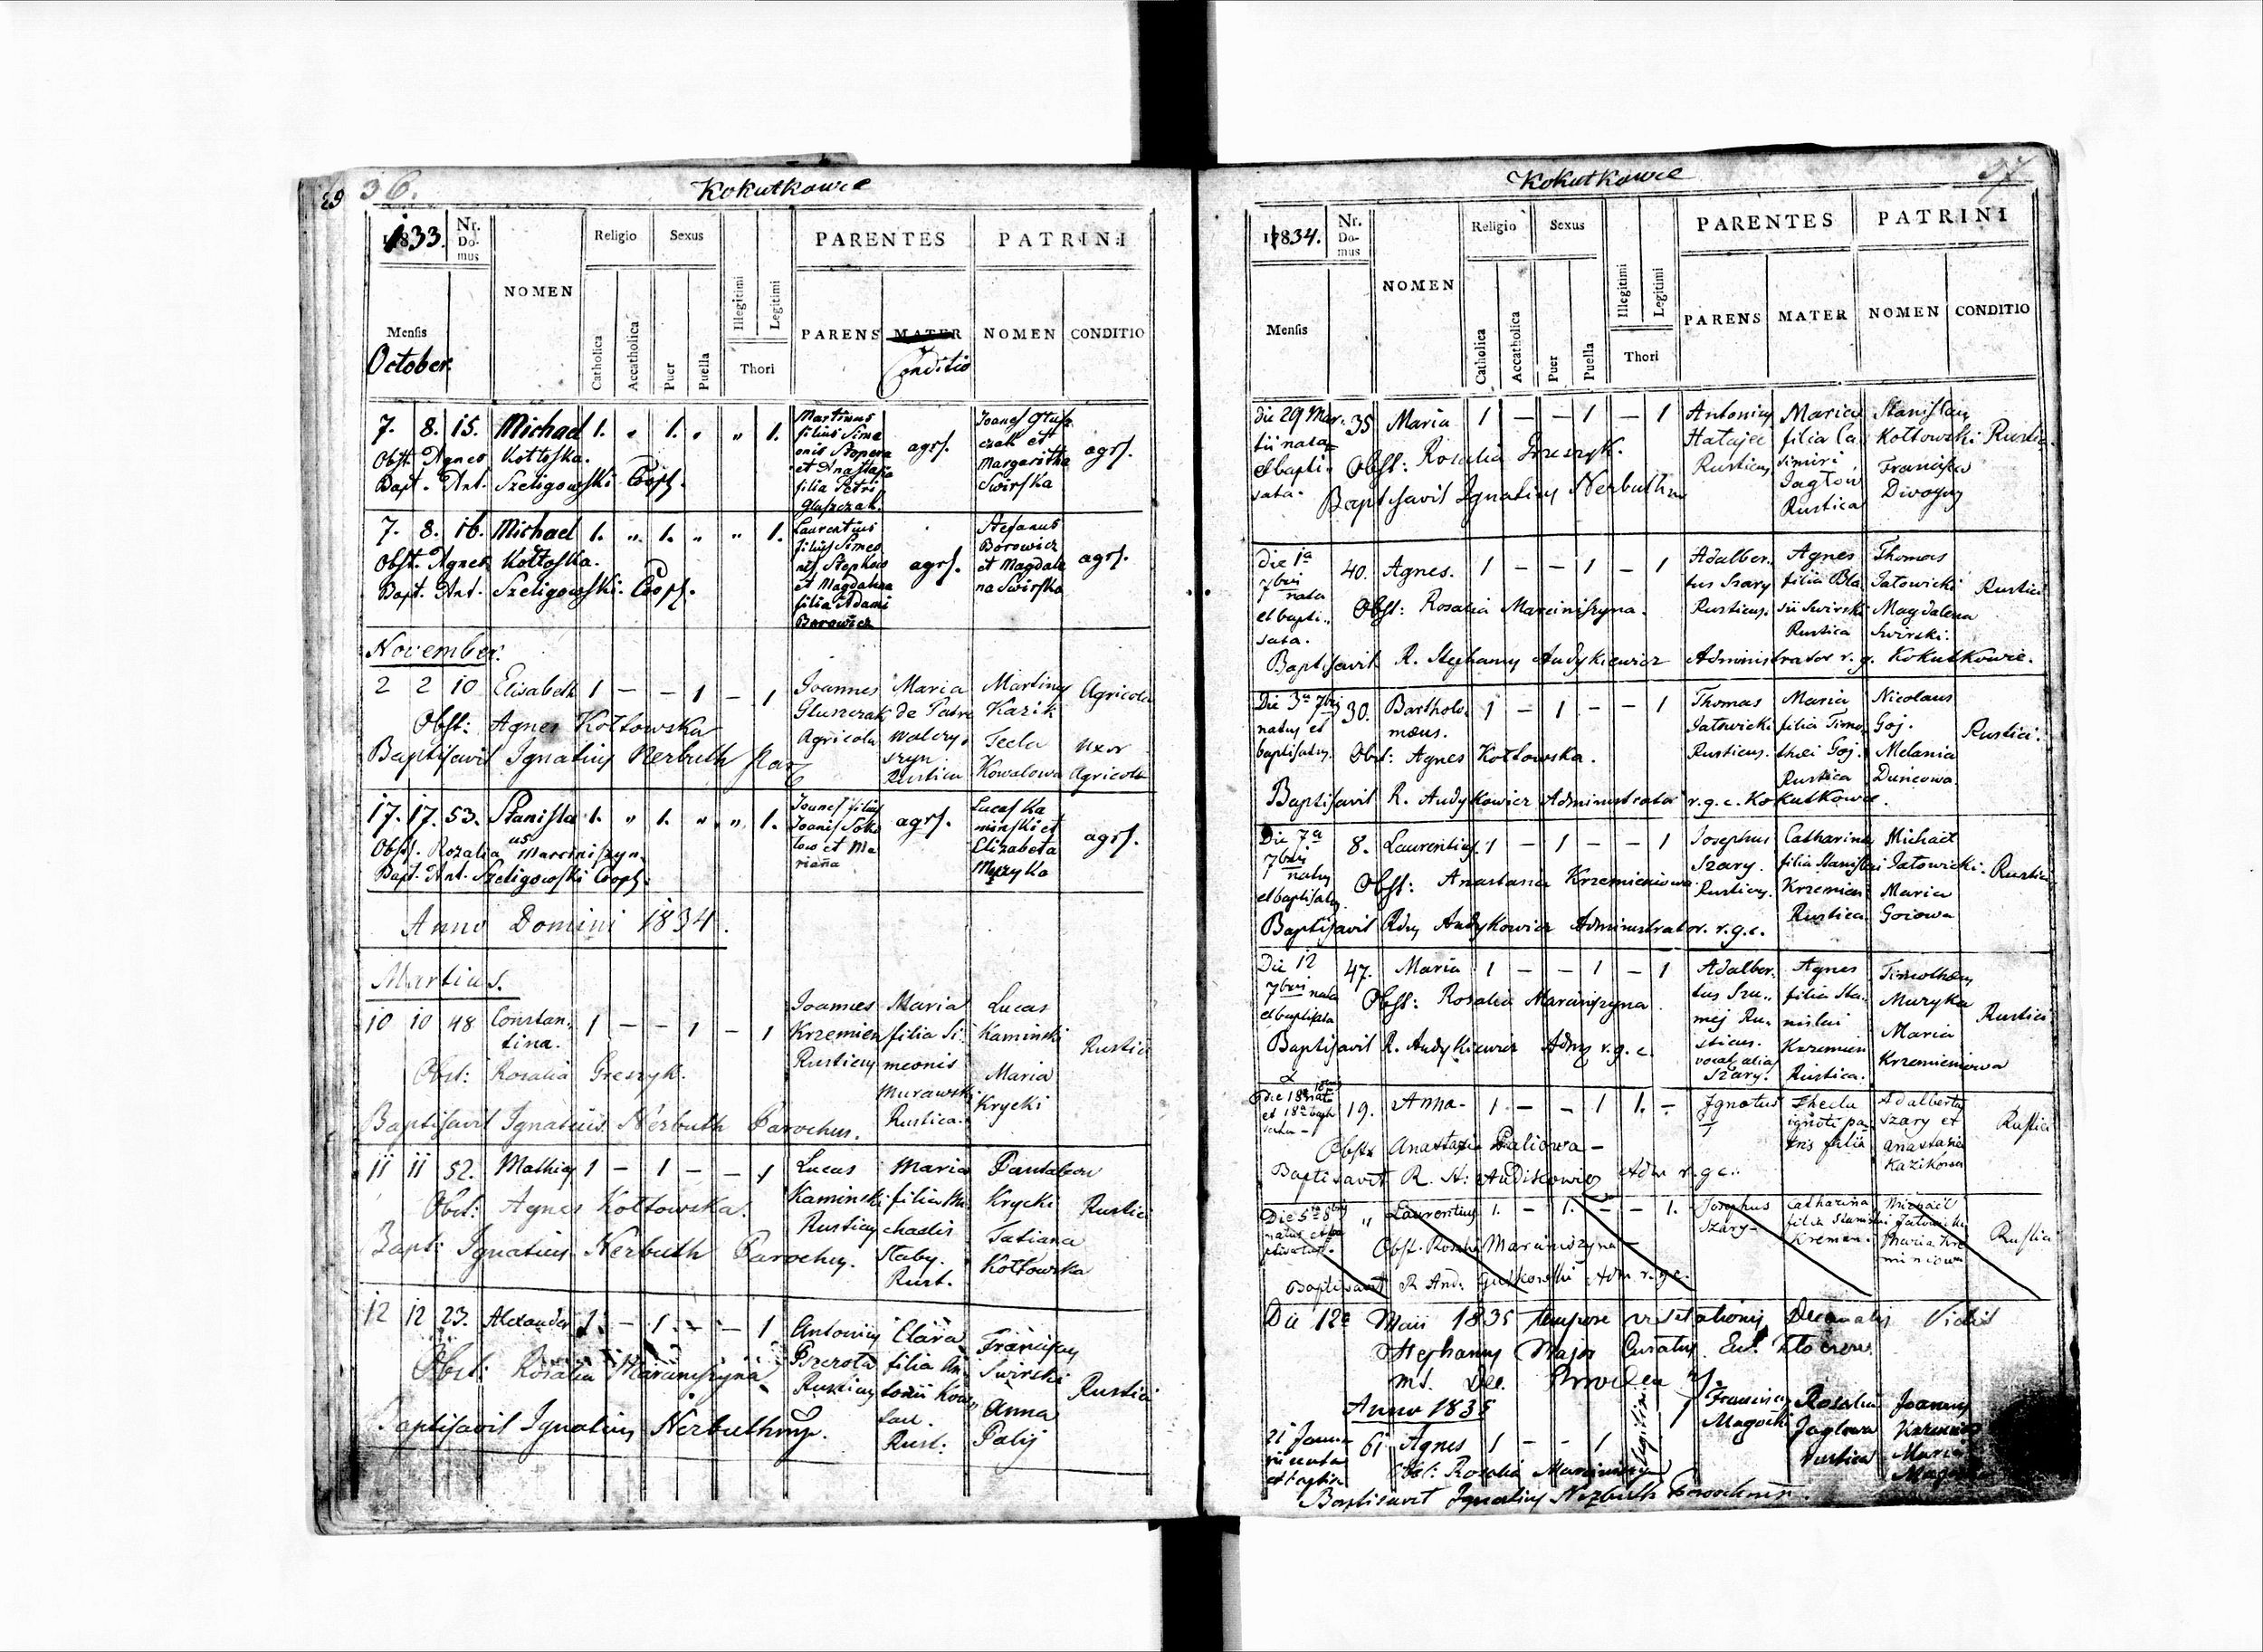 29 36.
Kokutkowce
1833.
Nr. Do- mus
NOMEN
Religio
Sexus
PARENTES
PATRINI
Catholica
Accatholica
Puer
Puella
Illegitimi
Legitimi
Thori
PARENS
MATER
Conditio
NOMEN
CONDITIO
Mensis
October.
7. 8. 15. Michael 1. „ 1. „ „ 1.
Martinus
filius Sime
onis Stopera
et Anastasia
filia Petri
Gluszczak.
agrs.
Joanes Glusz
czak et
Margaritha
Swirska
agrs.
Obst. Agnes Kołtoska.
Bapt. Ant. Szeligowski Coop.
7. 8. 16. Michael 1. „ 1. „ „ 1.
Laurentius
filius Simeo
nis Stephois
et Magdalena
filia Adami
Borowicz
agrs.
Stefanus
Borowicz
et Magdale
na Swirska
agrs.
Obst. Agnes Kołtoska.
Bapt. Ant. Szeligowski. Coop.
November.
2 2 10 Elisabeth 1 – – 1 – 1
Joannes
Gluszczak
Agricola
Maria
de Patre
Walczy.
szyn
Rustica
Martinus
Kazik
Tecla
Kowalowa
Agricola
Uxor
Agricolae
Obst: Agnes Kołtowska
Baptisavit Ignatius Nerbuth
17. 17. 53. Stanisla 1. „ 1. „ „ 1.
us
Joanes filius
Joanis Soko
low et Ma
rianna
agrs.
Lucas Ka
minski et
Elizabeta
Muzyka
agrs.
Obst. Rozalia Marciniszyn.
Bapt. Ant. Szeligowski Coop.
Anno Domini 1834.
Martius.
10 10 48 Constan.
tina. 1 – – 1 – 1
Joannes
Krzemien
Rusticus
Maria
filia Si.
meonis
Murawski
Rustica.
Lucas
Kaminski
Maria
Krycki
Rustici
Obst: Rosalia Greszyk.
Baptisavit Ignatius Nerbuth Parochus.
11 11 52. Mathias 1 – 1 – – 1
Lucas
Kaminski
Rusticus
Maria
filia Mi.
chaelis
Slaby.
Rust.
Pantaleon
Krycki
Tatiana
Kołtowska
Rustici
Obst: Agnes Kołtowska.
Bapt: Ignatius Nerbuth Parochus.
12 12 23. Alexander 1 – 1 – – 1
Antonius
Rusticus
Clara
filia An.
tonii
Rust:
Franciscus
Swirski
Anna
Palij
Rustici
Obst: Rosalia Marciniszyna
Baptisavit Ignatius Nerbuth mp.
37
Kokutkowce
1834.
Nr. Do- mus
NOMEN
Religio
Sexus
PARENTES
PATRINI
Catholica
Accatholica
Puer
Puella
Illegitimi
Legitimi
Thori
PARENS
MATER
NOMEN
CONDITIO
Mensis
die 29 Mar.
tii nata
et bapti.
sata.
35 Maria 1 – – 1 – 1
Antonius
Hatajec
Rusticus
Maria
filia Ca.
simiri
Jagłow
Rustica
Stanislaus
Kołtowski
Francisca
Rustici.
Obst: Rosalia Greszyk.
Baptisavit Ignatius Nerbuth mp
Die 1a
7bris
nata
et bapti.,
sata.
40. Agnes. 1 – – 1 – 1
Adalber.
tus Szary
Rusticus.
Agnes
filia Bla
sii Swirski
Rustica
Thomas
Jatowicki
Magdalena
Swirski.
Rustici
Obst: Rosalia Marciniszyna.
Baptisavit R. Stephanus Andykiewicz Administrator r. g. Kokutkowce.
Die 3a 7bris
natus et
baptisatus.
30. Bartholo.
mæus. 1 – 1 – – 1
Thomas
Jatowicki
Rusticus.
Maria
filia Timo.
thei Goj.
Rustica
Nicolaus
Goj.
Melania
Duncowa
Rustici.
Obst: Agnes Kołtowska.
Baptisavit R. Andykowicz Administrator r. g. c. Kokutkowce.
Die 7a
7bris
natus
et baptisatus
8. Laurentius. 1 – 1 – – 1
Josephus
Szary.
Rusticus.
Catharina
filia Stanislai
Krzemien
Rustica.
Michael
Jatowicki.
Maria
Goiowa
Rustici
Obst: Anastasia Krzemieniowa
Baptisavit Rdus Andykowicz Administrator. r. g. c.
Die 12
7bris nata
et baptisata
47. Maria 1 – – 1 – 1
Adalber.
tus Szu..
mej Ru.
sticus.
vocat. alias
Szary.
Agnes
filia Sta.
nislai
Krzemien
Rustica.
Timotheus
Muzyka
Maria
Krzemieniowa
Rustici
Obst: Rosalia Marciniszyna
Baptisavit R. Andykiewicz Adms r. g. c.
19. Anna – 1. – – 1 1. –
Ignotus
Thecla
ignoti pa.
tris filia
Adalbertus
Szary et
Anastasia
Kazikowa
Rustici
Obstx Anastasia Paliowa –
Baptisavit R. St: Andiskowicz Adm r. g c.:
Die 5ta 8bris
natus et ba
ptisatus.
„ Laurentius 1. – 1. – – 1.
Josephus
Szary –
Catharina
filia Stanislai
Kremen.
Michael
Jatowicki
Maria Kre
miniowa
Rustici
Obst. Rosalia Marciniszyna –
Baptisavit R. And. Gutkowski Adm. r. g c.
Die 12a Maii 1835 tempore visitationis Decanalis Vidit
Stephanus Major Curatus
Anno 1835
21 Janua
rii nata
et baptis
61 Agnes 1 – – 1
legitimi
Franciscus
Magocki
Rosalia
Jaglowa
rustica
Joannes
Krzemien
Maria
Obst: Rosalia Marciniszyn
Baptisavit Ignatius Nerbuth Parochus.